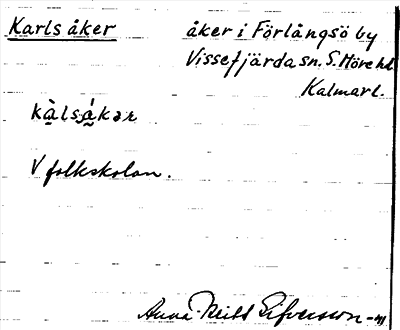 Karlsåker
åker i Förlångsö by
Vissefjärda sn. S. Möre hd
Kalmar l.
kàlsákar
V folkskolan.
Anna-Britt Elfversson -41